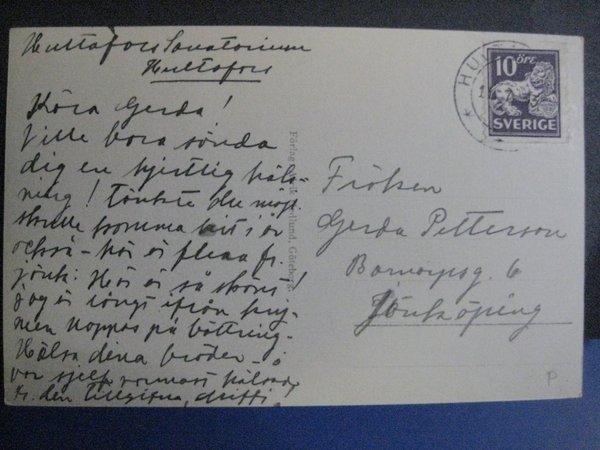 Hultafors Sanatorium
Hultafors
Kära Gerda!
Ville bara sända
dig en hjertlig häls-
ning! Tänkte du möjl.
skulle komma hit i år
också - här är flera fr.
Jönk. Här är så skönt!
Jag är långt ifrån
men hoppas på bättring.
Hälsa dina bröder - o
var sjelf varmast hälsad
fr. den tillgifna
Förlag Göteborg.
HUL
10 ÖRE
SVERIGE
Fröken
Gerda Petterson
6
Jönköping
P